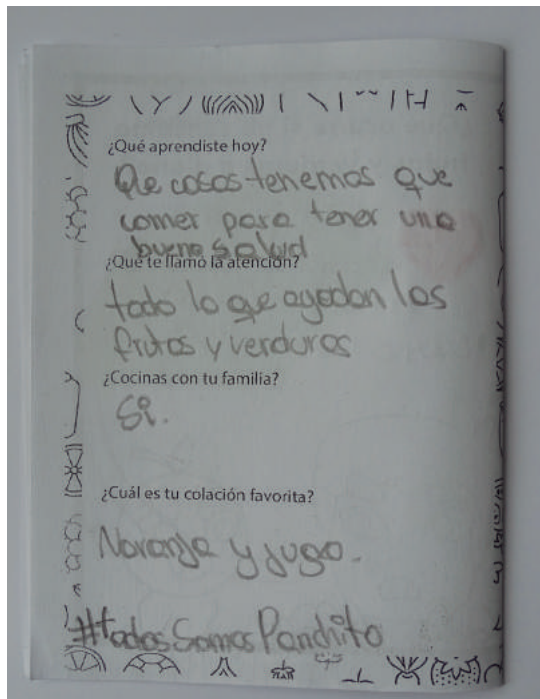 ¿Qué aprendiste hoy?
Qe cosas tenemos que
comer para tener una
buena salud
¿Qué te llamó la atención?
todo lo qe ayudan las
frutas y verduras
¿Cocinas con tu familia?
Si.
¿Cuál es tu colación favorita?
Naranja y jugo.
#todos Somos Panchito